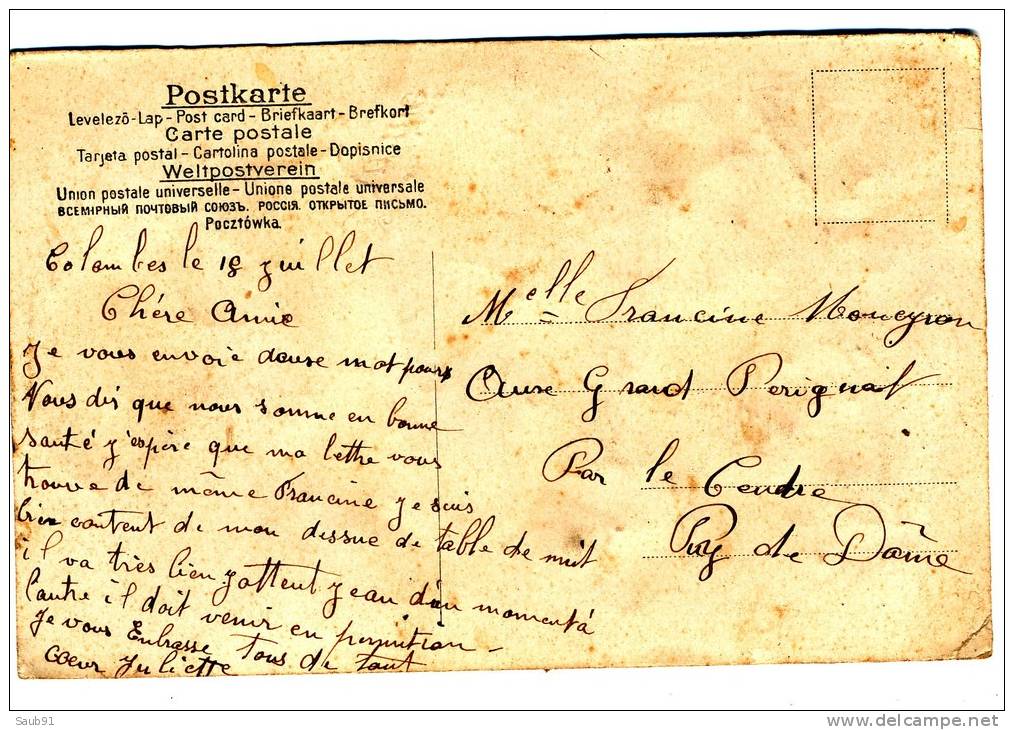 Postkarte
Levelező-Lap - Post card - Briefkaart - Brefkort
Carte postale
Tarjeta postal - Cartolina postale - Dopisnice
Weltpostverein
Union postale universelle - Unione postale universale
ВСЕМІРНЫЙ ПОЧТОВЫЙ СОЮЗЪ. РОССІЯ. ОТКРЫТОЕ ПИСЬМО.
Pocztówka.
Colombes le 18 juillet
Chére Amie
Je vous envoie deuse mot pour
Vous dir que nous somme en bonne
santé j'espère que ma lettre vous
trouve de même Francine je suis
bien content de mon dessue de table de nuit
il va très bien j'attent jean d'un momentà
l'autre il doit venir en permition -
Je vous Enbrasse tous de tout
coeur Juliette
Melle Francine Moneyron
Grand Perignat
Par le Cendre
Puy de Dôme
Saub91
www.delcampe.net